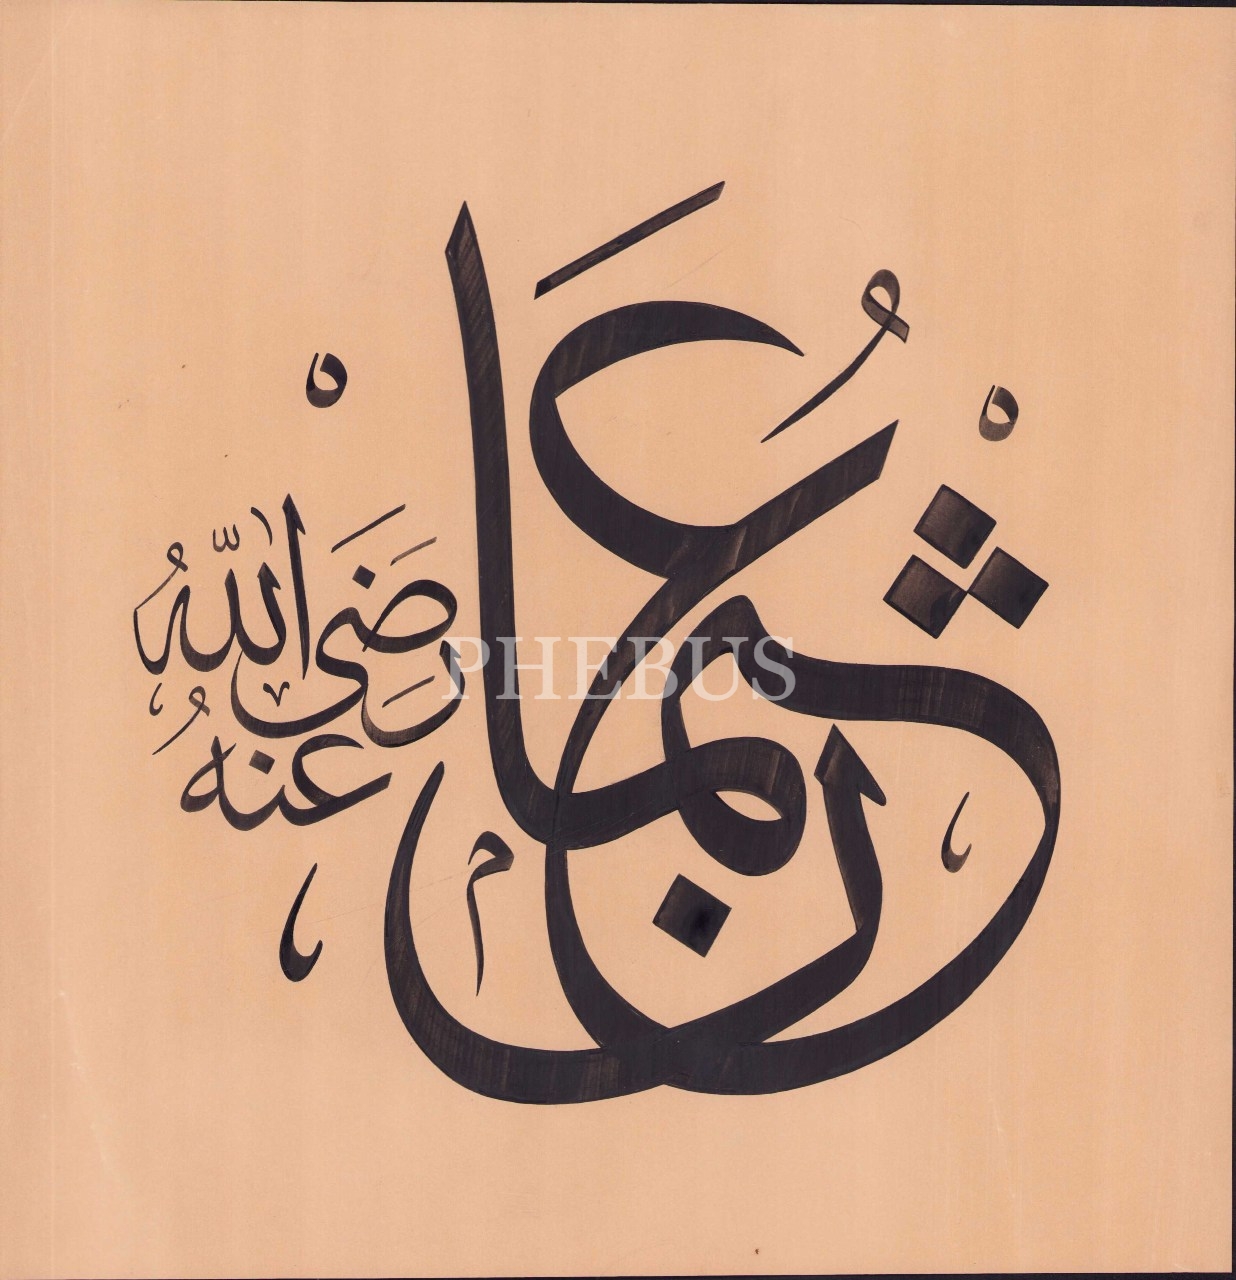 عُثْمَان
رَضِيَ اللّٰهُ
عَنْهُ
PHEBUS